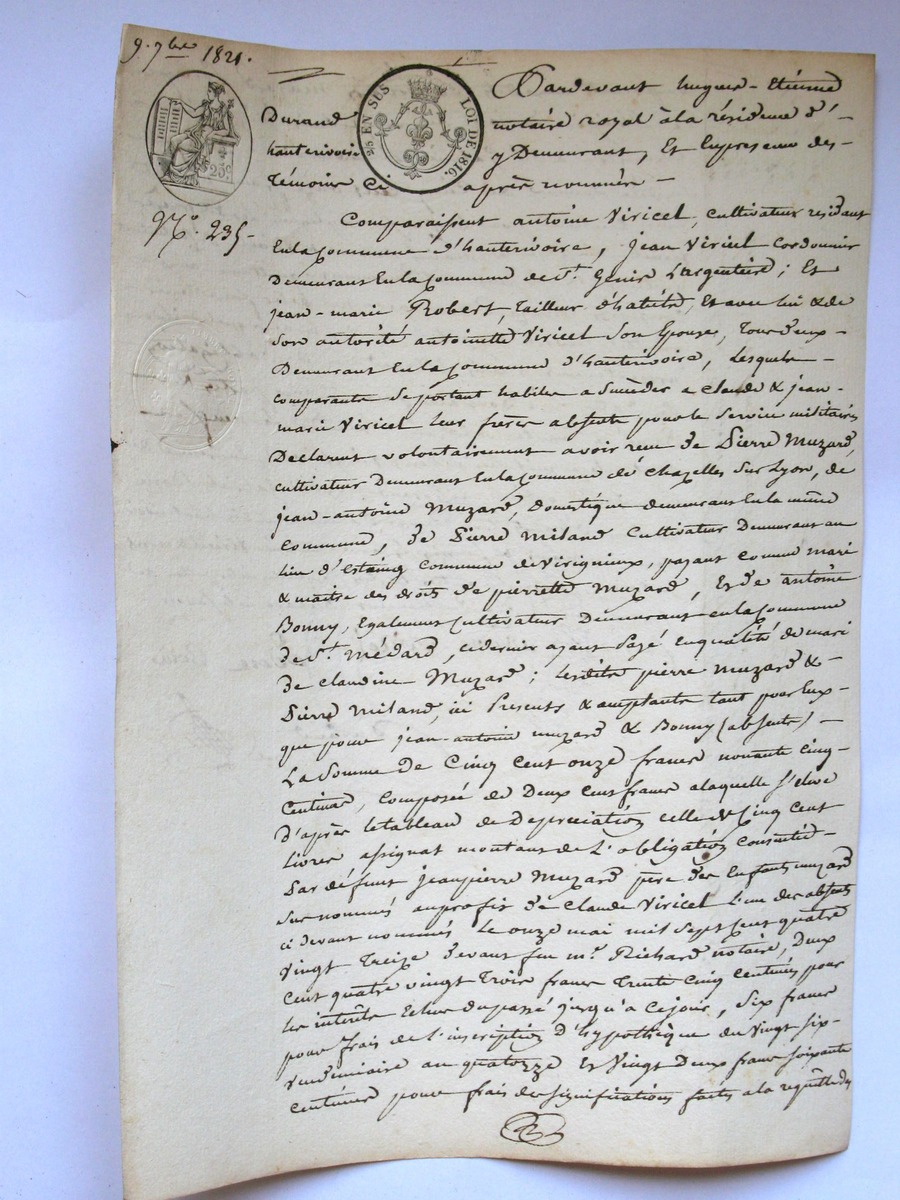 9. 7bre 1821.
Pardevant hugues-Etienne
Durand notaire royal à la résidence d'-
hauterivoire y Demeurant, Et En presence des-
témoins Ci après nommés-
25 EN SUS LOI DE 1816.
25c.
No. 235-
Comparaissent antoine Viricel, cultivateur residant
En la commune d'hauterivoire, jean Viricel Cordonnier
Demeurant En la commune de St. Genis L'argentiere; Et
jean-marie Robert, tailleur d'habits, Et avec lui & de
son autorité antoinette Viricel son Epouse, tous deux-
Demeurant En la commune d'hauterivoire, Lesquels-
comparants se portant habiles a succèder a claude & jean-
marie Viricel leur frères absents pour le service militaire,
Declarent volontairement avoir reçu de Pierre Muzard,
cultivateur Demeurant En la commune de Chazelles sur Lyon, de
jean-antoine Muzard, Domestique demeurant En la même
commune, de Pierre Miland cultivateur Demeurant au
lieu d'Estaing commune de Virigneux, payant comme mari
& maitre des droits de pierrette Muzard, Et de antoine
Bonny, Egalement cultivateur Demeurant en la commune
de St. Médard, ce dernier ayant payé en qualité de mari
de claudine Muzard; lesdits pierre muzard &-
Pierre Miland, ici Presents & acceptants tant pour Eux-
que pour jean-antoine muzard & Bonny (absents)-
La Somme de Cinq Cent onze francs nonante cinq-
Centimes, composée de Deux cent francs a laquelle s'élève
D'après le tableau de Depréciation celle de Cinq Cent
Livres assignat montant de L'obligation Consentie-
Par défunt jean pierre Muzard père des Enfants muzard
sus nommés au profit de Claude Viricel l'un des absents
ci devant nommés Le onze mai mil sept cent quatre
vingt Treize devant feu me. Richard notaire, Deux
cent quatre vingt Trois francs Trente Cinq centimes pour
les interêts Echus du passé jusqu'à ce jour, Six francs
pour frais de L'inscription d'hypothèque du Vingt Six-
vendemiaire an quatorze Et Vingt Deux francs soixante
centimes pour frais de significations faites a la requête des